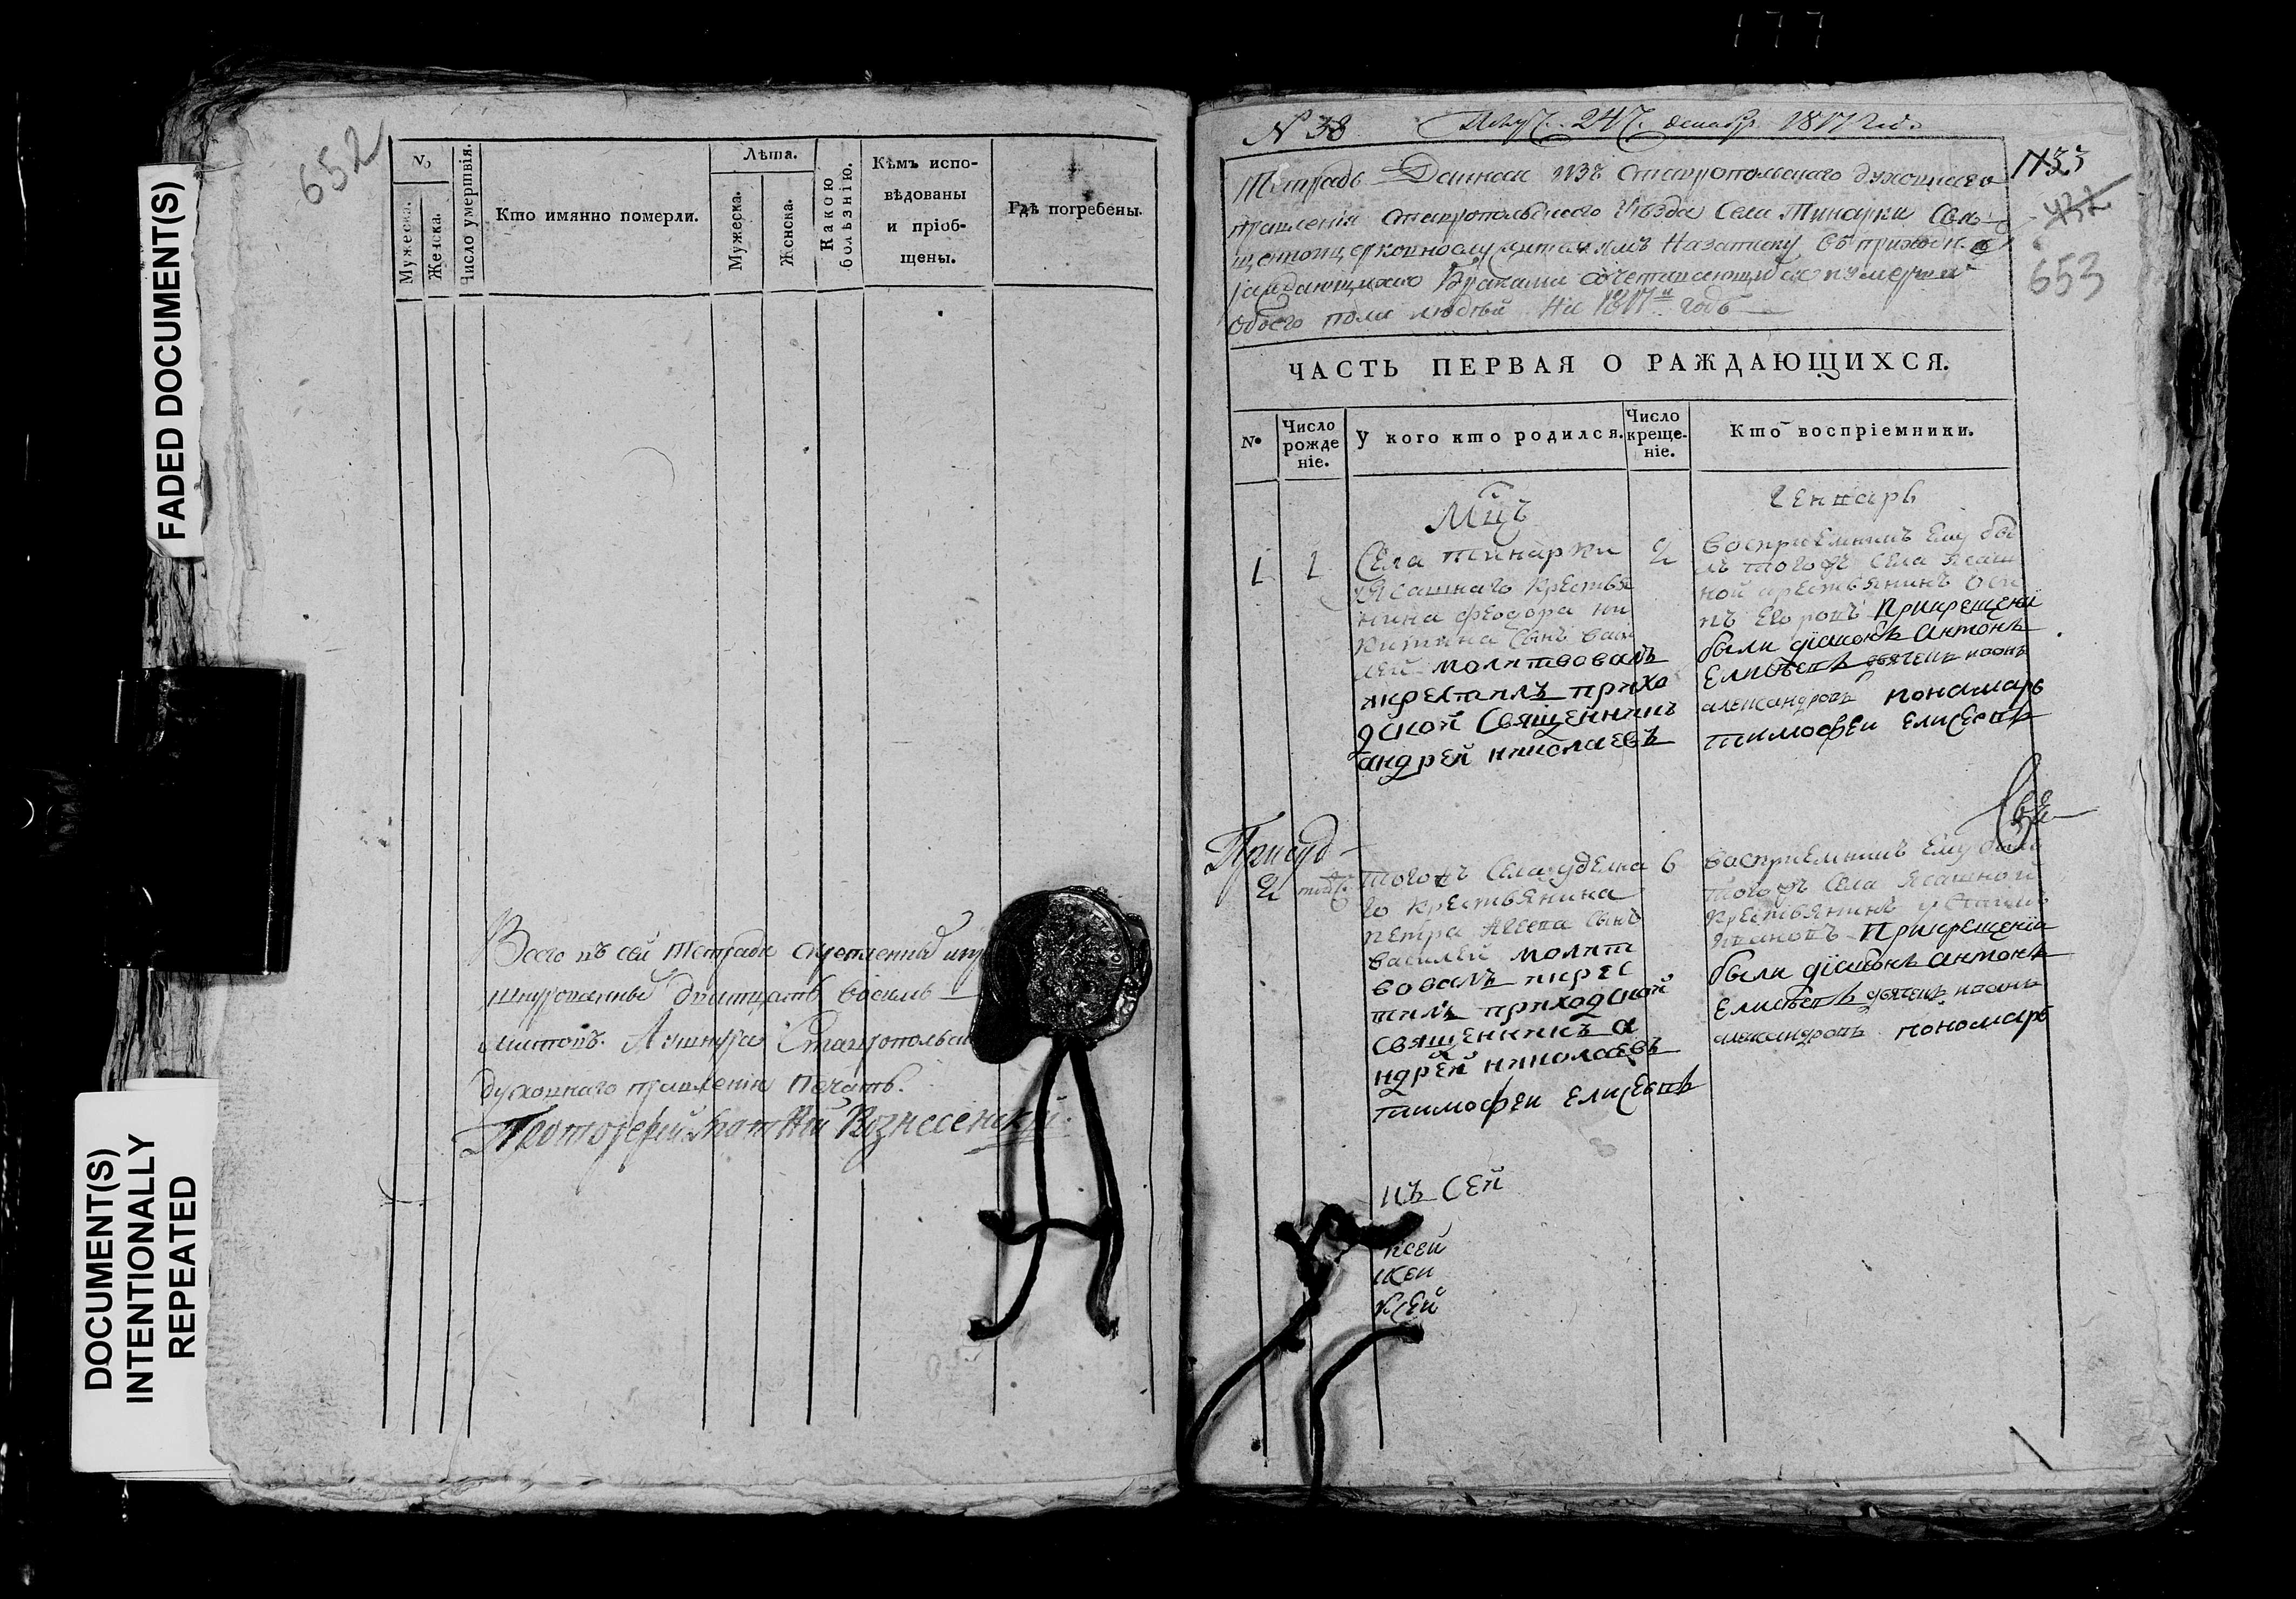 177
FADED DOCUMENT(S)
DOCUMENT(S)
INTENTIONALLY
REPEATED
652
№
Мужеска.
Женска.
Число умертвія.
Кто имянно померли.
Лѣта.
Мужеска.
Женска.
Какою
болѣзнію.
Кѣмъ испо-
вѣдованы
и пріоб-
щены.
Гдѣ погребены.
Всего въ сей тетради скрепленныхъ
шнурованныхъ дватцать восемь
листовъ.
духовнаго правленія печать.
Протоіерей Вознесенскій.
N 38
24 декабр. 1817 года
433
432
653
Тетрадь Данная изъ Ставропольскаго духовнаго
правленія Ставропольскаго уѣзда Села Тинарки
церковнослужителямъ На записку въ приходѣ
раждающихся браками сочетавающихся и умерших
обоего пола людей На 1817й годъ
ЧАСТЬ ПЕРВАЯ О РАЖДАЮЩИХСЯ.
№
Число
рожде
ніе.
У кого кто родился.
Число
креще-
ніе.
Кто воспріемники.
Мцъ
Генварь
1
1
2
Села тинарки
Ясашнаго крестья
нина феодора ни
китина сынъ васи
лей молитвовалъ
икрестилъ прихо
дской Священникъ
андрей николаевъ
восприемникъ ему бы
лъ того жъ села ясаш
ной крестьянинъ оси
пъ егоровъ Прикрещени
были діаконъ антонъ
Елисеевъ иоанъ
александровъ пономарь
тимофеи Елисеевъ
2
6
того жъ села удельна
го крестьянина
петра сынъ
василей молит
вовалъ икрес
тилъ приходской
священникъ а
ндрей николаевъ
тимофеи Елисеевъ
восприемникъ ему былъ
того жъ села ясашной
крестьянинъ
ивановъ Прикрещении
были діаконъ антонъ
Елисеевъ иоанъ
александровъ пономарь
къ Сей
ксей
ксей